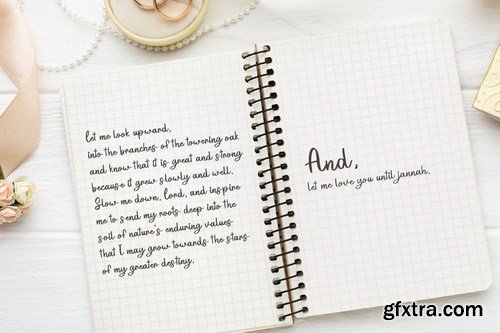 let me look upward,
into the branches of the towering oak
and know that it is great and strong
because it grew slowly and well.
Slow me down, lord, and inspire
me to send my roots deep into the
soil of nature's enduring values
that I may grow towards the stars
of my greater destiny.
And,
let me love you until jannah.
gfxtra.com